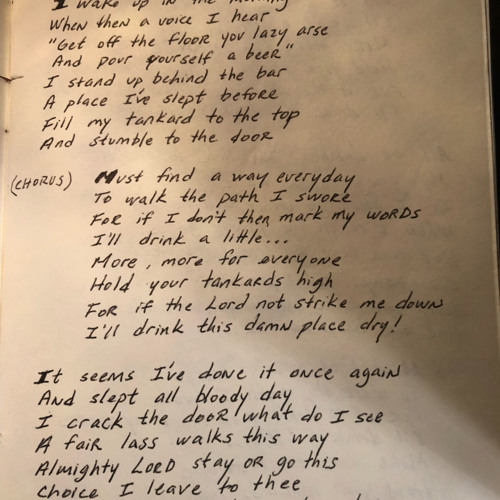 I wake up in the morning
When then a voice I hear
"Get off the floor you lazy arse
And pour yourself a beer"
I stand up behind the bar
A place I've slept before
Fill my tankard to the top
And stumble to the door
(CHORUS) Must find a way everyday
To walk the path I swore
For if I don't then mark my words
I'll drink a little...
More, more for everyone
Hold your tankards high
For if the Lord not strike me down
I'll drink this damn place dry!
It seems I've done it once again
And slept all bloody day
I crack the door what do I see
A fair lass walks this way
Almighty Lord stay or go this
choice I leave to thee